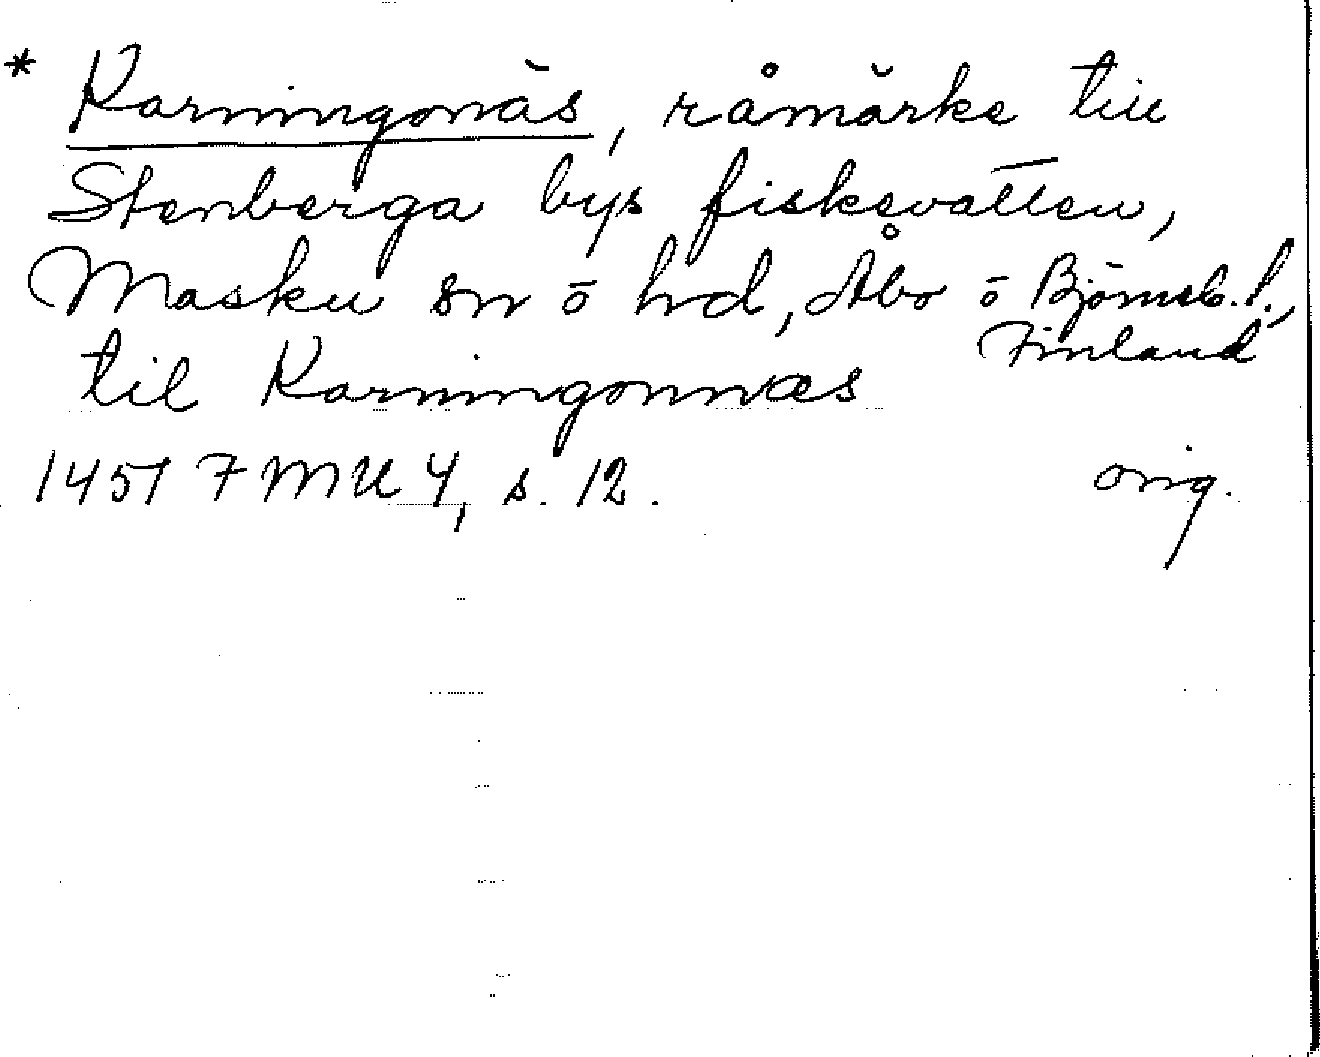 * Karningonäs, råmärke till
Stenberga bys fiskevatten,
Masku sn o hd, Åbo o Björneb. l.,
Finland
til Karningonnæs
1451 FMU 4, s. 12. orig.